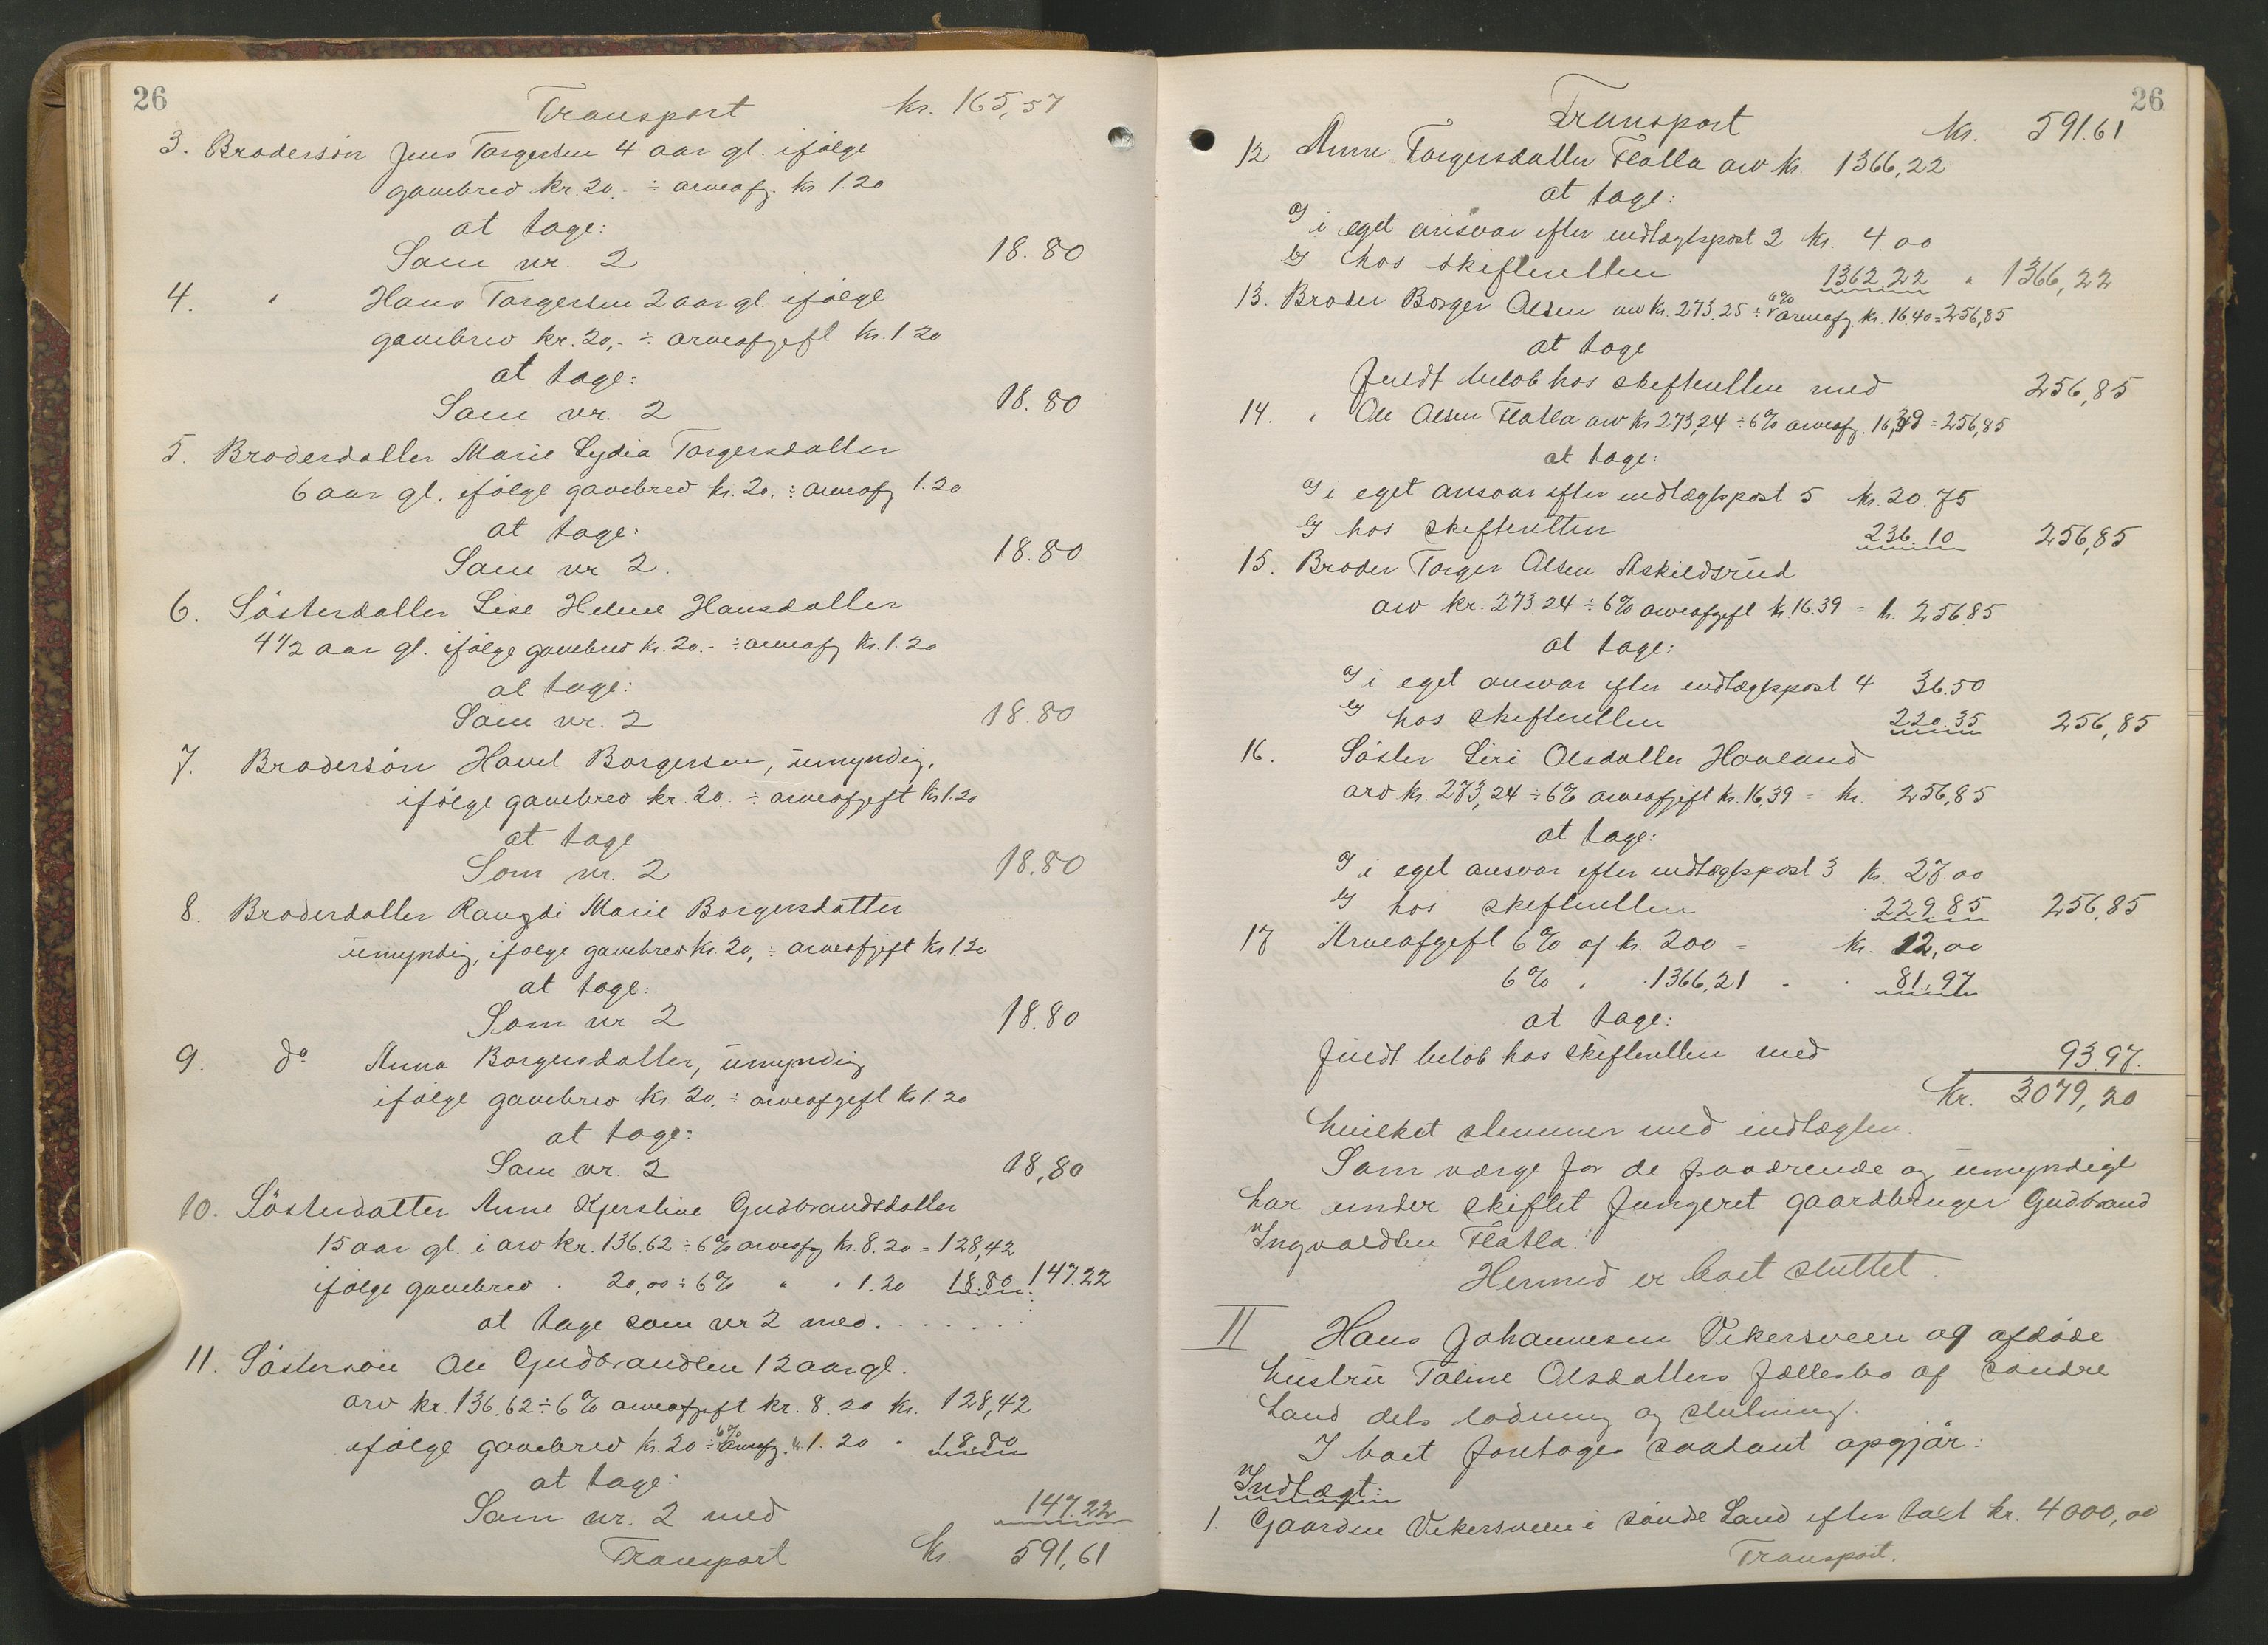 26
Transport kr. 165,57
3. Brodersön Jens Torgersen 4 aar gl. ifölge
gavebrev kr. 20. ÷ arveafg. kr 1.20
at tage:
Som nr. 2 18.80
4. " Hans Torgersen 2 aar gl. ifölge
gavebrev kr. 20,- ÷ arveafgift kr. 1.20
at tage:
Som nr. 2 18.80
5. Broderdatter Marie Lydia Torgersdatter
6 aar gl. ifölge gavebrev kr. 20. ÷ arveafg 1.20
at tage:
Som nr 2. 18.80
6. Sösterdatter Lise Helene Hansdatter
4 1/2 aar gl. ifölge gavebrev kr. 20.- ÷ arveafg kr. 1.20
at tage:
Som nr. 2 18.80
7. Brodersön Havel Borgersen, umyndig,
ifölge gavebrev kr. 20. ÷ arveafgift kr 1.20
at tage
Som nr. 2 18.80
8. Broderdatter Rangdi Marie Borgersdatter
umyndig, ifölge gavebrev kr. 20, ÷ arveafgift kr 1.20
at tage:
Som nr 2 18.80
9. do Anna Borgersdatter, umyndig
ifölge gavebrev kr 20, ÷ arveafgift kr 1.20
at tage:
Som nr. 2 18,80
10. Sösterdatter Anne Kjerstine Gudbrandsdatter
15 aar gl. i arv kr. 136.62 ÷ 6% arveafg kr. 8.20 = 128,42
ifölge gavebrev . 20,00 ÷ 6% " " 1.20 18.80 147.22
at tage som nr 2 med . . . . . . .
11. Söstersön Ole Gudbrandsen 12 aar gl.
arv kr. 136.62 ÷ 6% arveafgift kr. 8.20 kr. 128,42
ifölge gavebrev kr. 20 ÷ 6% arveafg. kr. 1.20 " 18.80
at tage:
Som nr. 2 med 147.22
Transport kr. 591,61
26
Transport kr. 591.61
12 Anne Torgersdatter Flatla arv kr. 1366,22
at tage:
a) i eget ansvar efter indtægtspost 2 kr. 4.00
b) hos skifteretten 1362.22 " 1366,22
13. Broder Borger Olsen arv kr. 273.25 ÷ 6% arveafg. kr. 16.40 = 256,85
at tage
fuldt belöb hos skifteretten med 256,85
14. " Ole Olsen Flatla arv kr 273,24 ÷ 6% arveafg. 16,39 = 256,85
at tage:
a) i eget ansvar efter indtægtspost 5 kr. 20.75
b) hos skifteretten 236.10 256,85
15. Broder Torger Olsen Askildsrud
arv kr. 273.24 ÷ 6% arveafgift kr 16.39 = kr. 256.85
at tage:
a) i eget ansvar efter indtægtspost 4 36.50
b) hos skifteretten 220.35 256,85
16. Söster Siri Olsdatter Hovland
arv kr. 273,24 ÷ 6% arveafgift kr. 16,39 = kr. 256,85
at tage:
a) i eget ansvar efter indtægtspost 3 kr. 27.00
b) hos skifteretten 229.85 256.85
17 Arveafgift 6% af kr. 200 = kr. 12,00
6% . . 1366,21 . . 81.97
at tage:
fuldt belöb hos skifteretten med 93.97.
kr. 3079,20
hvilket stemmer med indtægten.
Som værge for de fraværende og umyndige
har under skiftet fungeret gaardbruger Gudbrand
Ingvaldsen Flatla.
Hermed er boet sluttet.
II Hans Johannesen Vikersveen og afdöde
hustru Toline Olsdatters fællesbo af söndre
Land dets lodning og slutning.
I boet foretages saadant opgjör:
Indtægt:
1. Gaarden Vikersveen i söndre Land efter taxt kr. 4000,00
Transport.